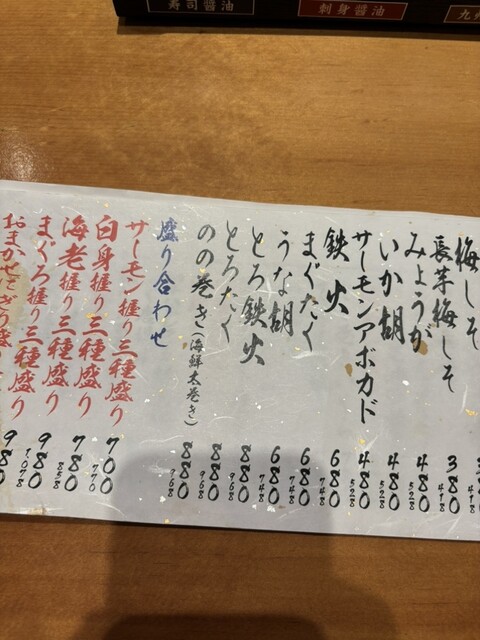 寿司醤油
刺身醤油
九
梅しそ
418
長芋梅しそ 380
418
みょうが 480
528
いか胡 480
528
サーモンアボカド 480
528
鉄火 680
748
まぐたく 680
748
うな胡 680
748
とろ鉄火 880
968
とろたく 880
968
のの巻き(海鮮太巻き) 880
968
盛り合わせ
サーモン握り三種盛り 700
770
白身握り三種盛り 780
858
海老握り三種盛り 980
1078
まぐろ握り三種盛り 980
おまかせにぎり